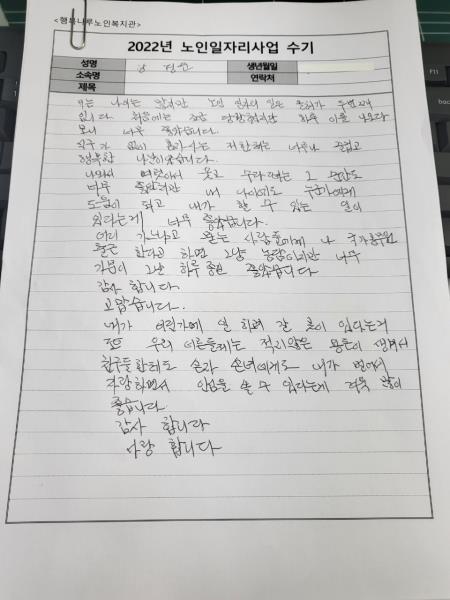 <행복나루노인복지관>
2022년 노인일자리사업 수기
성명 강 생년월일
소속명 연락처
제목
나는 나이는 노인 일자리 일은
입니다. 처음에는 하루 이틀 나오다
보니 너무 좋았습니다.
친구가 없이 혼자사는 저한테는 너무나 즐겁고
행복한 나날이었습니다.
나와서 여럿이서 웃고 수다떠는 그 순간도
너무 좋았지만 내 나이에도 누군가에게
도움이 되고 내가 할 수 있는 일이
있다는게 너무 좋았습니다.
어디 가냐고 묻는 사람들에게 나 국가공무원
출근 한다고 하면 그냥 농담이지만 너무
기분이 그날 하루 종일 좋았습니다
감사 합니다.
고맙습니다.
내가 어딘가에 일 하러 갈 곳이 있다는거
또 우리 나이든들에게는 적지않은 용돈이 생겨서
친구들한테도 손자 손녀에게도 내가 벌어서
자랑하면서 인심을 쓸 수 있다는게 더욱 많이
좋습니다
감사 합니다
사랑 합니다
F11